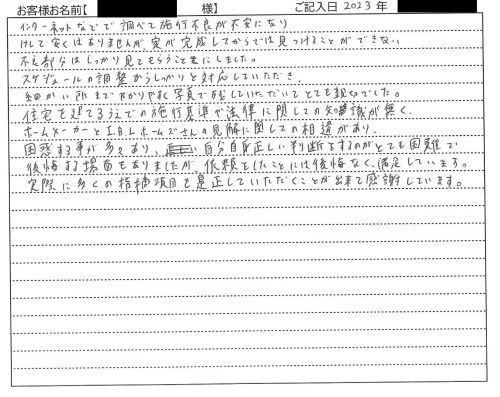 お客様お名前【 様】 ご記入日 2023年
インターネットなどで調べて施行不良が不安になり
けして安くはありませんが家が完成してからでは見つけることができない
不良部分はしっかり見てもらう事にしました。
スケジュールの調整からしっかりと対応していただき
細かい所まで分かりやすく写真で残していただいてとても親切でした。
住宅を建てるうえでの施行基準や法律に関しての知識が無く、
ホームメーカーとI.B.Lホームズさんの見解に関しての相違があり、
困惑する事が多々あり、自分自身正しい判断をするのがとても困難で
後悔する場面もありましたが、依頼をしたことには後悔なく、満足しています。
実際に多くの指摘項目を是正していただくことが出来て感謝しています。